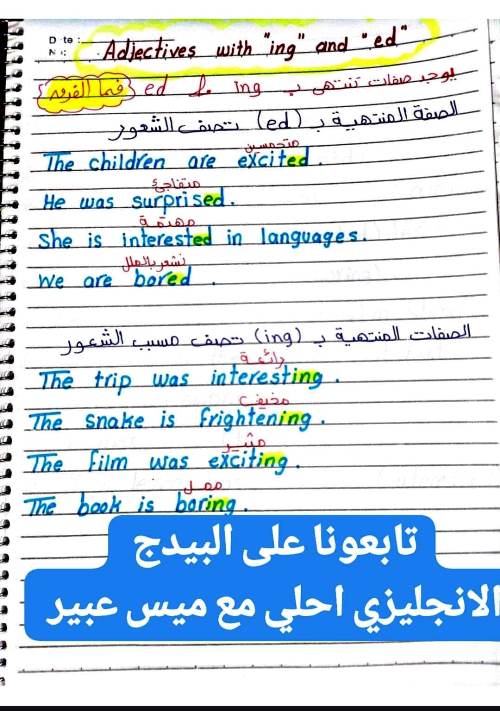 Date:
No:
Adjectives with "ing" and "ed"
يوجد صفات تنتهى ب ing و ed فما الفرق
الصفة المنتهية ب (ed) تصف الشعور
متحمسين
The children are excited.
متفاجئ
He was surprised.
مهتمة
She is interested in languages.
نشعر بالملل
We are bored.
الصفات المنتهية ب (ing) تصف مسبب الشعور
رائعة
The trip was interesting.
مخيف
The snake is frightening.
مثير
The film was exciting.
ممل
The book is boring.
تابعونا على البيدج
الانجليزي احلي مع ميس عبير